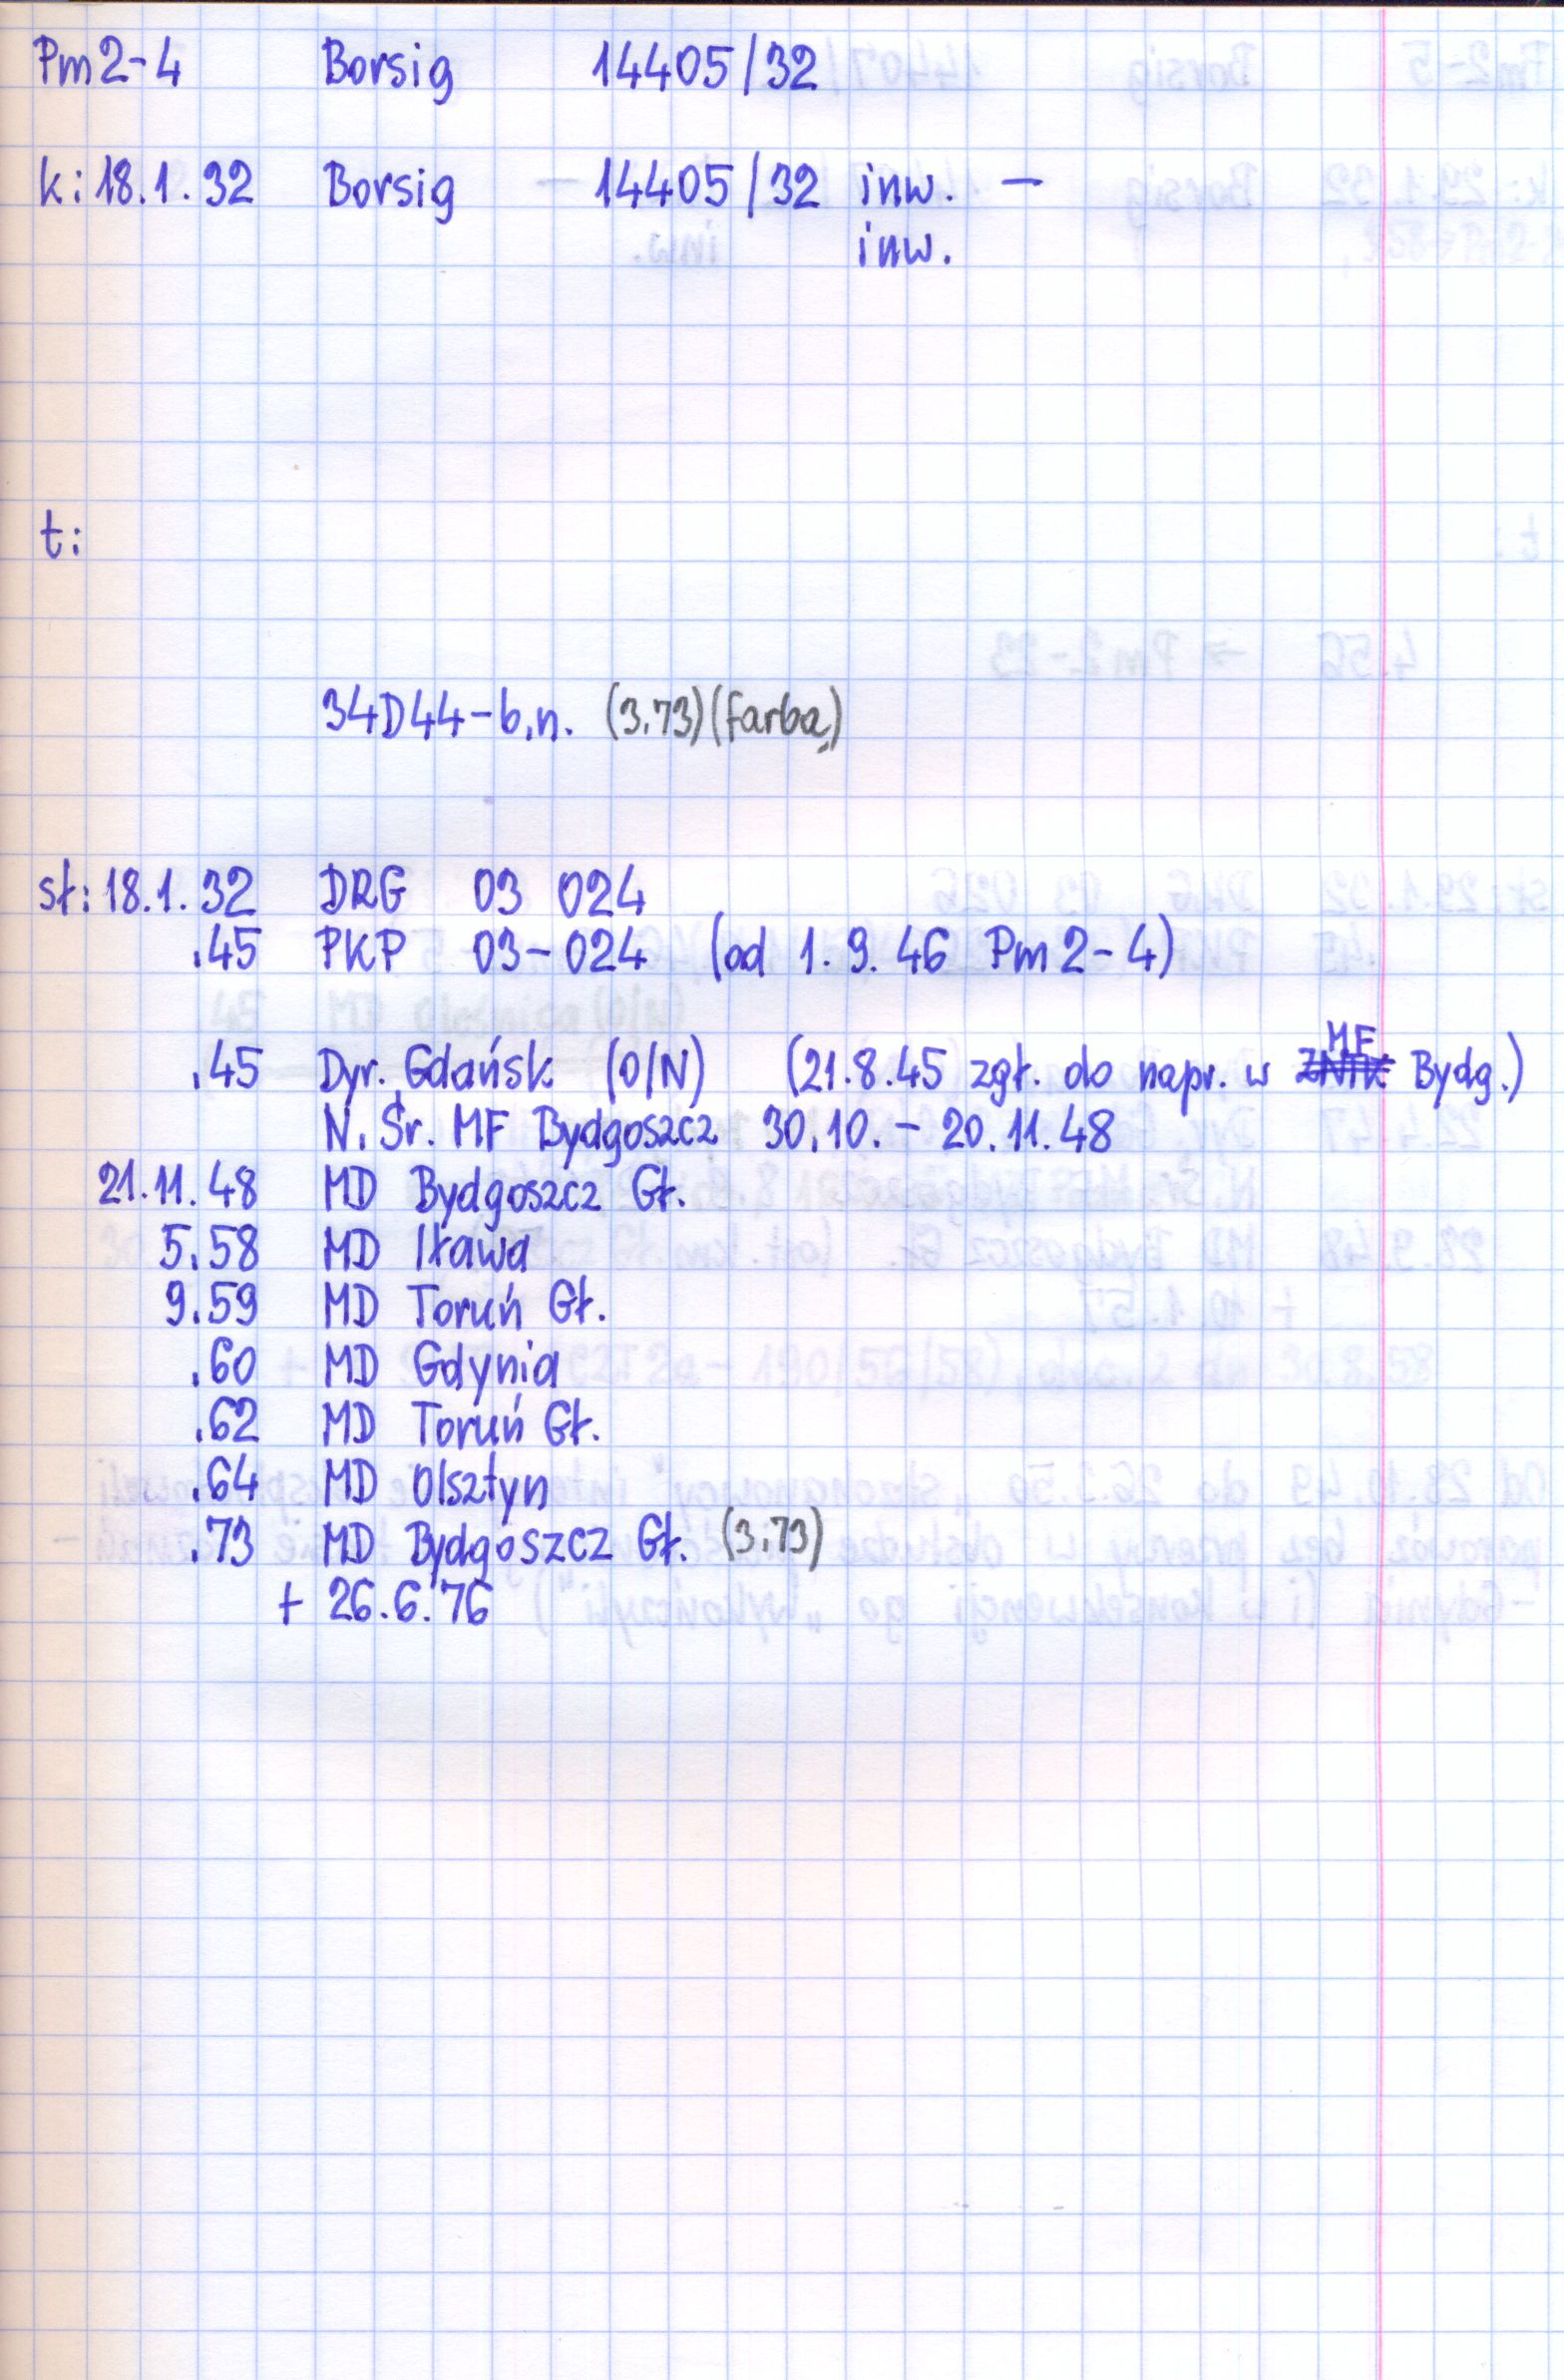 Pm2-4 Borsig 14405/32
k: 18.1.32 Borsig 14405/32 inw. —
inw.
t:
34D44-b.n. (3.73) (farbą)
sł: 18.1.32 DRG 03 024
.45 PKP 03-024 (od 1.9.46 Pm2-4)
.45 Dyr. Gdańsk (O/N) (21.8.45 zgł. do napr. w ZNTK MF Bydg.)
N. Śr. MF Bydgoszcz 30.10.-20.11.48
21.11.48 MD Bydgoszcz Gł.
5.58 MD Iława
9.59 MD Toruń Gł.
.60 MD Gdynia
.62 MD Toruń Gł.
.64 MD Olsztyn
.73 MD Bydgoszcz Gł. (3.73)
+ 26.6.76